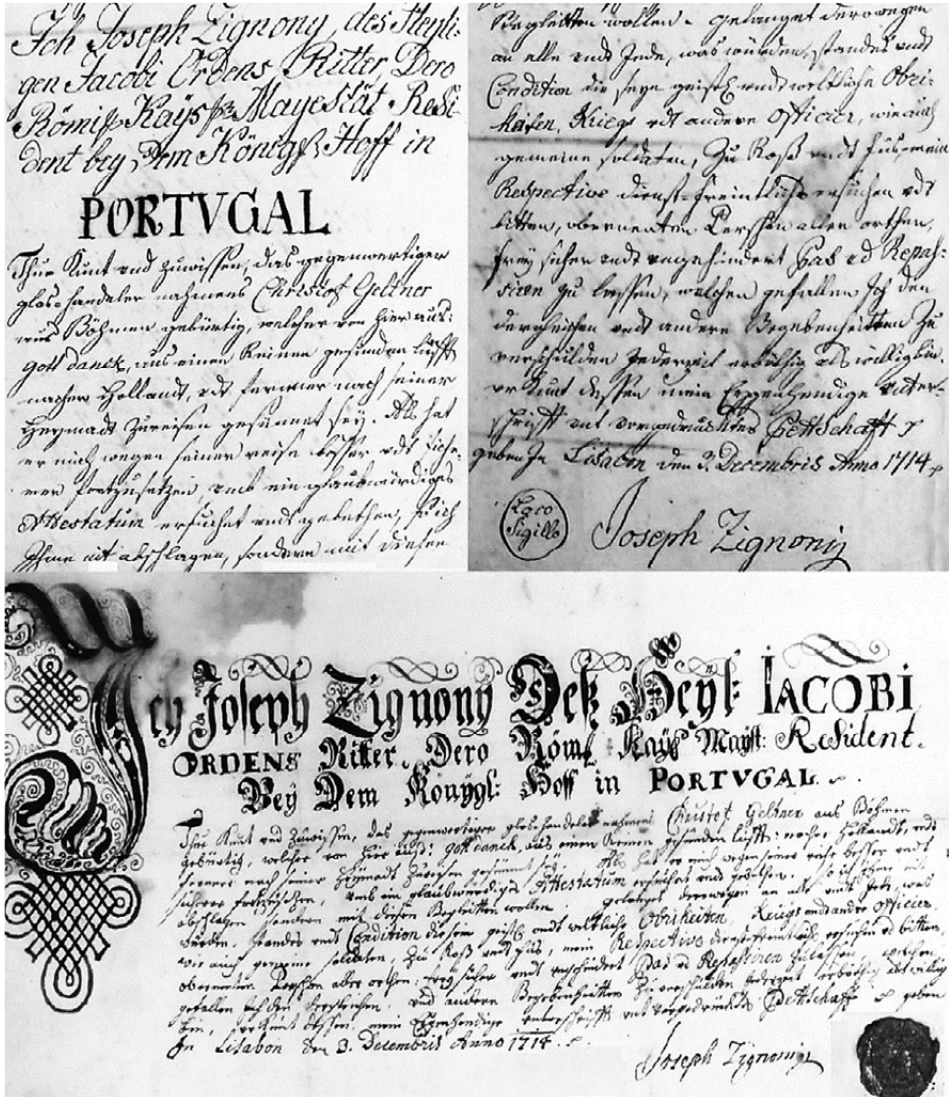 Ich Joseph Zignony, des Heyli-
gen Jacobi Ordens, Ritter, Dero
Römisch Kaÿs. Mayestät Resi-
dent bey Dem Königl. Hoff in
PORTVGAL
Thue Kunt vnd zuwissen, das gegenwertiger
glas-handeler nahmens Christof Geltner
aus Böhmen gebürtig, welcher von hier aus:
gott danck, aus einen Reinen gesunden lufft
nacher Hollandt, vdt ferner nach seiner
Heymadt zureisen gesinnet sey. Als hat
er mich wegen seiner reise besser vdt siche-
rer fortzusetzen, umb ein glaubwürdiges
Attestatum ersuchet vndt gebethen, so ich
Ihme nit abschlagen, sondern mit diesen
Begleitten wollen. gelanget derowegen
an alle vndt Jede, was würden, standes vndt
Condition die seyn geistl. vndt weltliche Obri-
keiten, Kriegs vdt andere Officier, wie auch
gemeine soldaten, Zu Roß vndt fus, mein
Respective dienst-freintliches ersuchen vdt
bitten, obernenten Persohn aller orthen,
frey sicher vndt ungehindert Pas vd Repas-
siren zu lassen, welchen gefallen Ich den
dergleichen vndt andere Begebenheitten Zu
verschulden Jederzeit erböthig als willig bin.
vr Kunt dessen mein Eygenhendige unter-
schrifft vnt vorgedrucktes Pettschafft
geben In Lisabon den 3. Decembris Anno 1714
Loco
Sigillo
Joseph Zignonij
Ich Joseph Zignony Deß Heyl: IACOBI
ORDENS Ritter. Dero Röm. Kaÿs Mayst: Resident.
Bey Dem Könygl: Hoff in PORTVGAL.
Thue Kunt vnd Zuwissen, das gegenwertiger glas-handeler nahmens Christof Geltner aus Böhmen
gebürtig, welcher von hier auß: gott danck, aus einen Reinen gesunden lufft: nacher Hollandt, vndt
ferner nach seiner Heymadt Zureisen gesinnet sey. Als hat er mich wegen seiner reise besser vndt
sicherer fortzusetzen, umb ein glaubwürdiges Attestatum ersuchet vnd gebethen. so ich Ihme nit
abschlagen sondern mit diesen Begleitten wollen. gelanget derowegen an alle vndt Jede, was
würden. standes vndt Condition die seyn geistl. vndt weltliche Obrikeiten, Kriegs vndt andere Officier,
wie auch gemeine soldaten, Zu Roß vndt fus, mein Respective dienstfreintliches ersuchen vd bitten,
obernenten Persohn aller orthen: frey sicher vndt ungehindert Pas vd Repassiren Zu lassen, welchen
gefallen Ich den dergleichen. vnd andere Begebenheitten Zu verschulden Jederzeit erböthig als willig
bin, vr Kunt dessen, mein Eygenhendige unterschrifft vnt vorgedrucktes Pettschafft geben
In Lisabon den 3. Decembris Anno 1714.
Joseph Zignonij